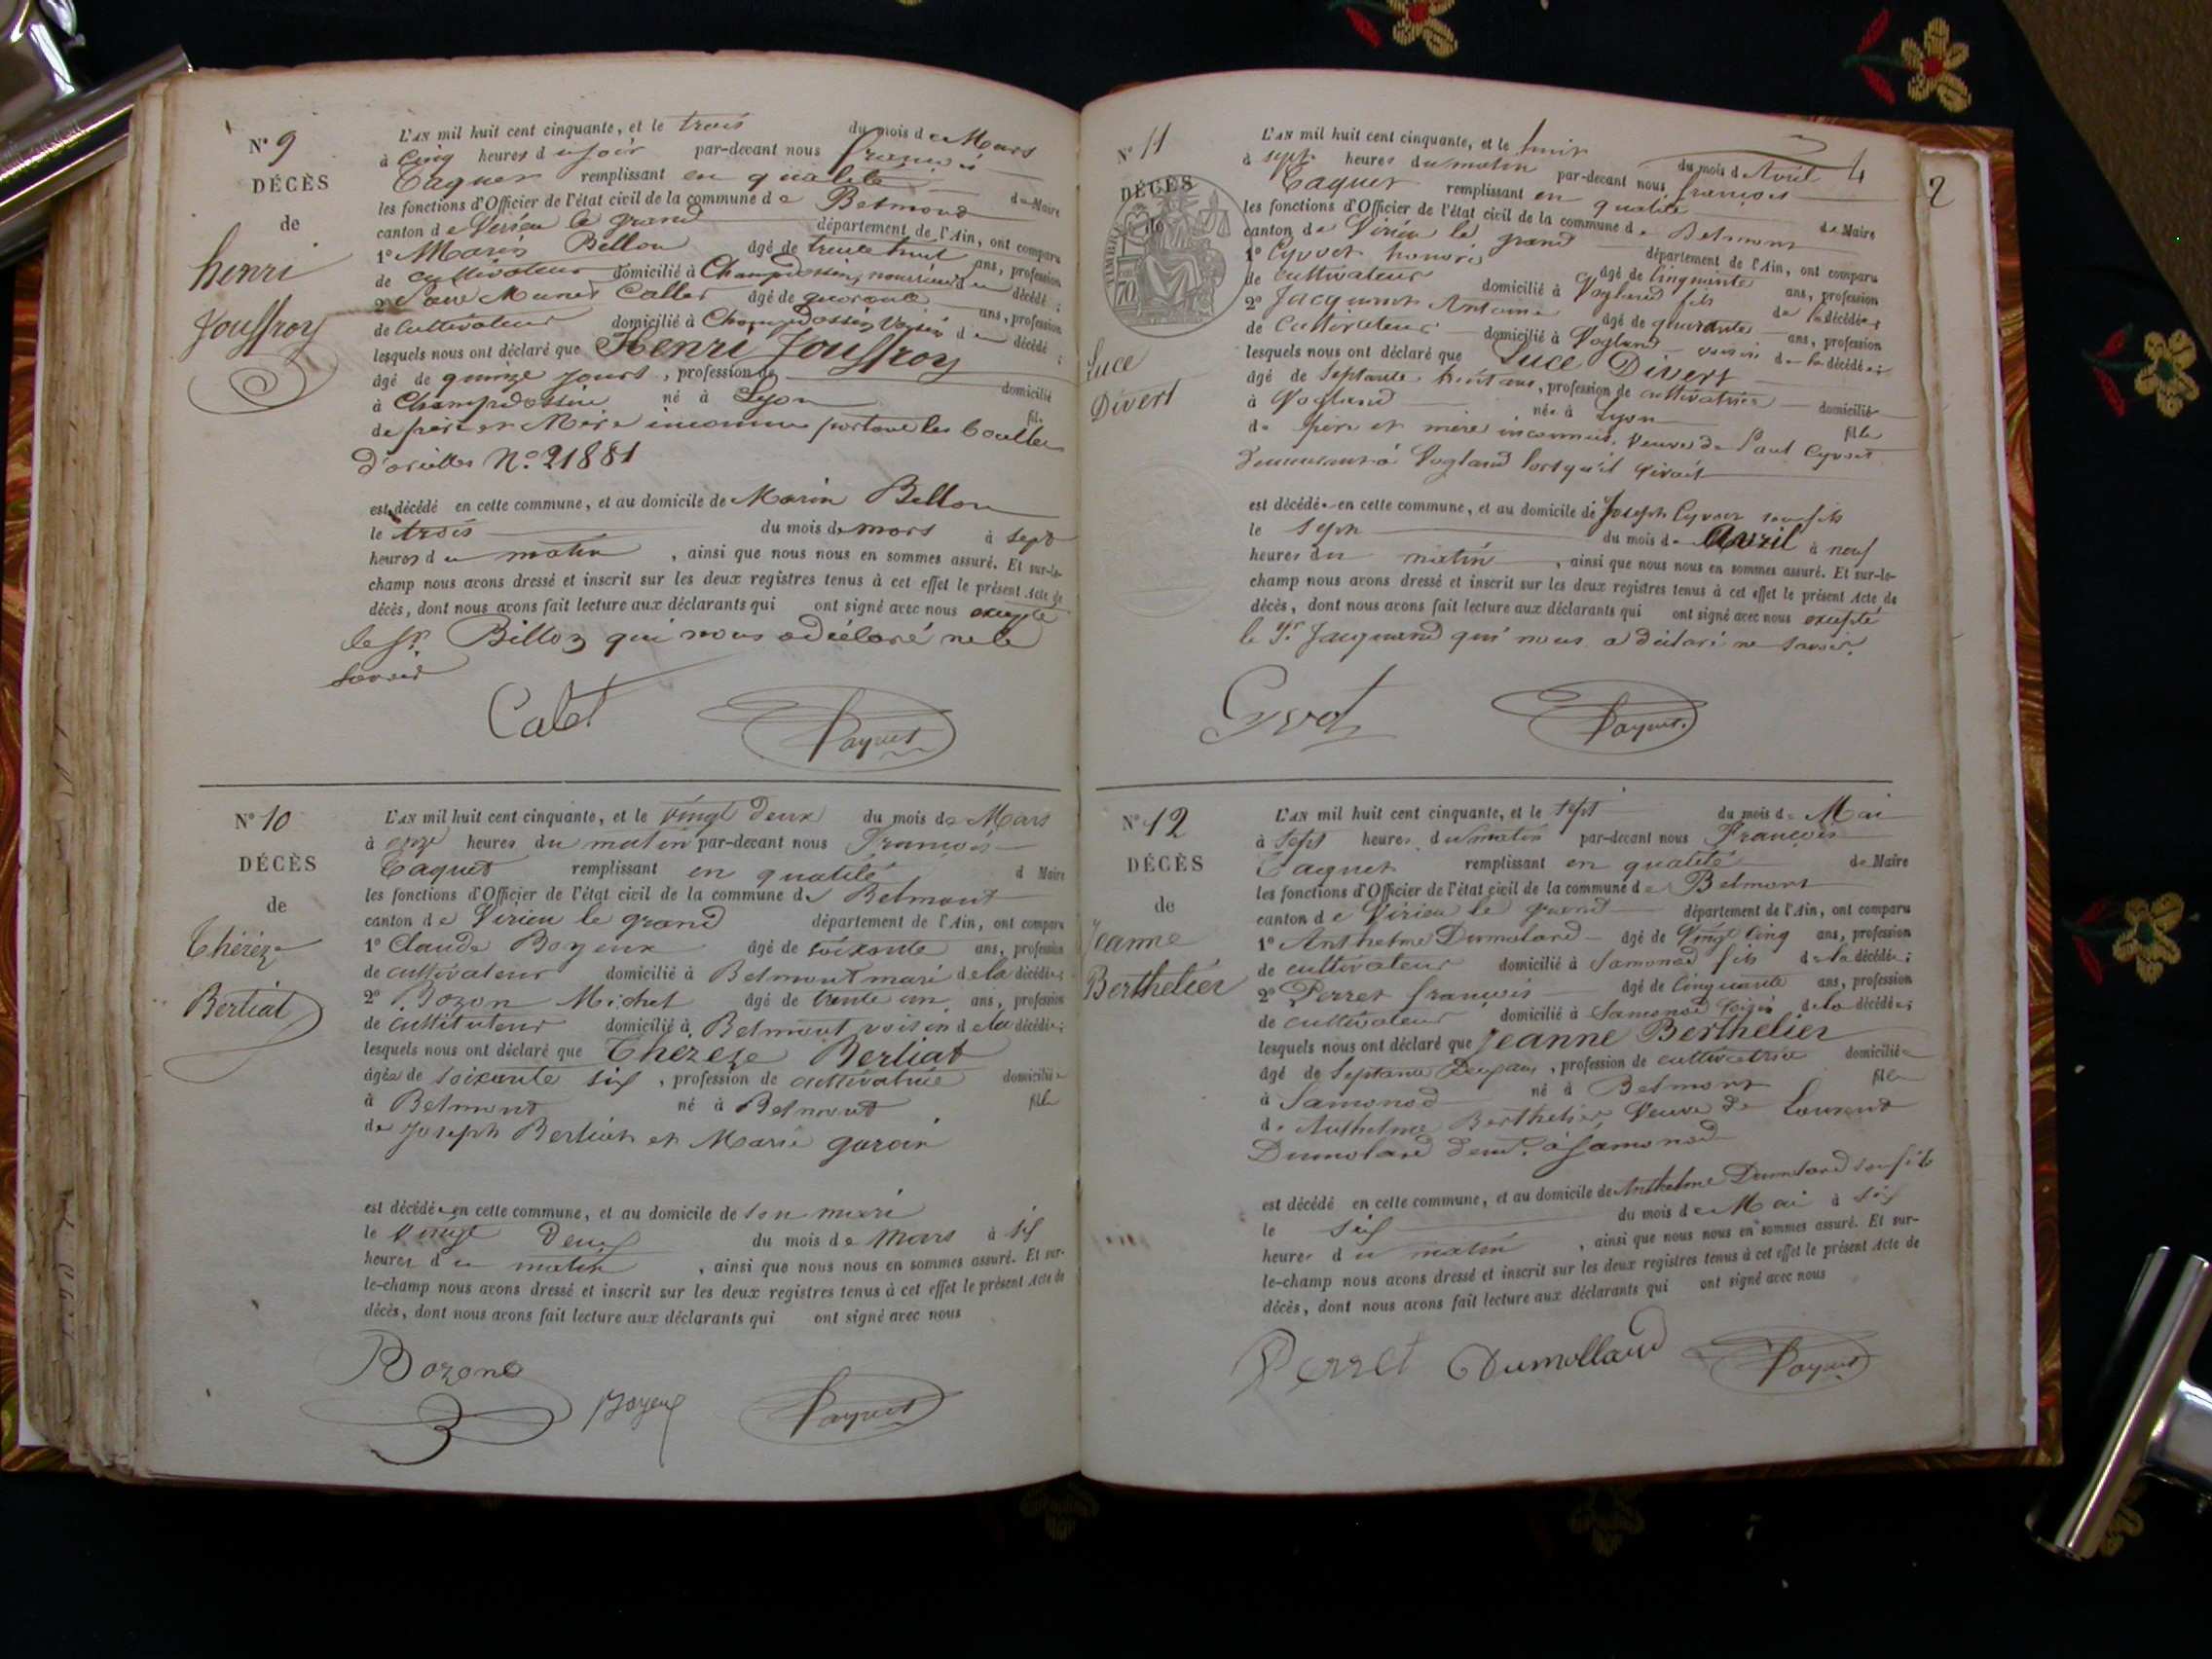 N° 9
DÉCÈS
de
henri
Jouffroy
L'AN mil huit cent cinquante, et le trois du mois de Mars
à Cinq heures du soir par-devant nous françois
Paquet remplissant en qualité de Maire
les fonctions d'Officier de l'état civil de la commune de Belmond
canton de Virieu le grand département de l'Ain, ont comparu
1° Marin Billon âgé de trente huit ans, profession
de cultivateur domicilié à Champdossin, du décédé ;
2° Callet âgé de quarante ans, profession
de Cultivateur domicilié à Champdossin Voisin du décédé ;
lesquels nous ont déclaré que Henri Jouffroy
âgé de quinze jours, profession de domicilié
à Champdossin né à Lyon fils
de père et Mère inconnus portant les boucles
d'oreilles N° 21881
est décédé en cette commune, et au domicile de Marin Billon
le trois du mois de mars à sept
heures du matin, ainsi que nous nous en sommes assuré. Et sur-le-
champ nous avons dressé et inscrit sur les deux registres tenus à cet effet le présent Acte de
décès, dont nous avons fait lecture aux déclarants qui ont signé avec nous excepté
le Sr. Billon qui nous a déclaré ne le
savoir
Calet Paquet
N° 10
DÉCÈS
de
Thérèze
Berliat
L'AN mil huit cent cinquante, et le vingt deux du mois de Mars
à onze heures du matin par-devant nous François
Paquet remplissant en qualité d Maire
les fonctions d'Officier de l'état civil de la commune de Belmont
canton de Virieu le grand département de l'Ain, ont comparu
1° Claude Boyeux âgé de soixante ans, profession
de cultivateur domicilié à Belmont mari de la décédée ;
2° Bozon Michel âgé de trente un ans, profession
de domicilié à Belmont voisin de la décédée ;
lesquels nous ont déclaré que Thereze Berliat
âgée de soixante six, profession de cultivatrice domiciliée
à Belmont né à Belmont fille
de Joseph Berliat et Marie garoin
est décédée en cette commune, et au domicile de son mari
le vingt deux du mois de Mars à six
heures du matin, ainsi que nous nous en sommes assuré. Et sur-
le-champ nous avons dressé et inscrit sur les deux registres tenus à cet effet le présent Acte de
décès, dont nous avons fait lecture aux déclarants qui ont signé avec nous
Bozon Boyeux Paquet
4
2
N° 11
DÉCÈS
TIMBRE
70
Luce
Divert
L'AN mil huit cent cinquante, et le huit du mois d Avril
à sept heures du matin par-devant nous françois
Paquet remplissant en qualité de Maire
les fonctions d'Officier de l'état civil de la commune de Belmont
canton de Virieu le grand département de l'Ain, ont comparu
1° Cyvoct honoré âgé de Cinquante ans, profession
de cultivateur domicilié à Vogland fils de la décédée ;
2° Jacquand Antoine âgé de quarante ans, profession
de Cultivateur domicilié à Vogland voisin de la décédée ;
lesquels nous ont déclaré que Luce Divert
âgé de septante huit ans, profession de cultivatrice domiciliée
à Vogland née à Lyon fille
de père et mère inconnus, Veuve de Paul Cyvoct
demeurant à Vogland lorsqu'il vivait
est décédée en cette commune, et au domicile de Joseph Cyvoct son fils
le sept du mois d Avril à neuf
heures du matin, ainsi que nous nous en sommes assuré. Et sur-le-
champ nous avons dressé et inscrit sur les deux registres tenus à cet effet le présent Acte de
décès, dont nous avons fait lecture aux déclarants qui ont signé avec nous excepté
le Sr. Jacquand qui nous a déclaré ne savoir.
Paquet
N° 12
DÉCÈS
de
Jeanne
Berthelier
L'AN mil huit cent cinquante, et le sept du mois de Mai
à sept heures du matin par-devant nous François
Paquet remplissant en qualité de Maire
les fonctions d'Officier de l'état civil de la commune de Belmont
canton de Virieu le grand département de l'Ain, ont comparu
1° Anthelme Dumolard âgé de Vingt Cinq ans, profession
de cultivateur domicilié à Samonod fils de la décédée ;
2° Perret françois âgé de Cinquante ans, profession
de cultivateur domicilié à Samonod Voisin de la décédée ;
lesquels nous ont déclaré que Jeanne Berthelier
âgé de Septante Deux ans, profession de cultivatrice domiciliée
à Samonod né à Belmont fille
de Anthelme Berthelier Veuve de Laurent
Dumolard demt. à Samonod
est décédé en cette commune, et au domicile de Anthelme Dumolard son fils
le six du mois de Mai à six
heures du matin, ainsi que nous nous en sommes assuré. Et sur-
le-champ nous avons dressé et inscrit sur les deux registres tenus à cet effet le présent Acte de
décès, dont nous avons fait lecture aux déclarants qui ont signé avec nous
Perret Dumollard Paquet